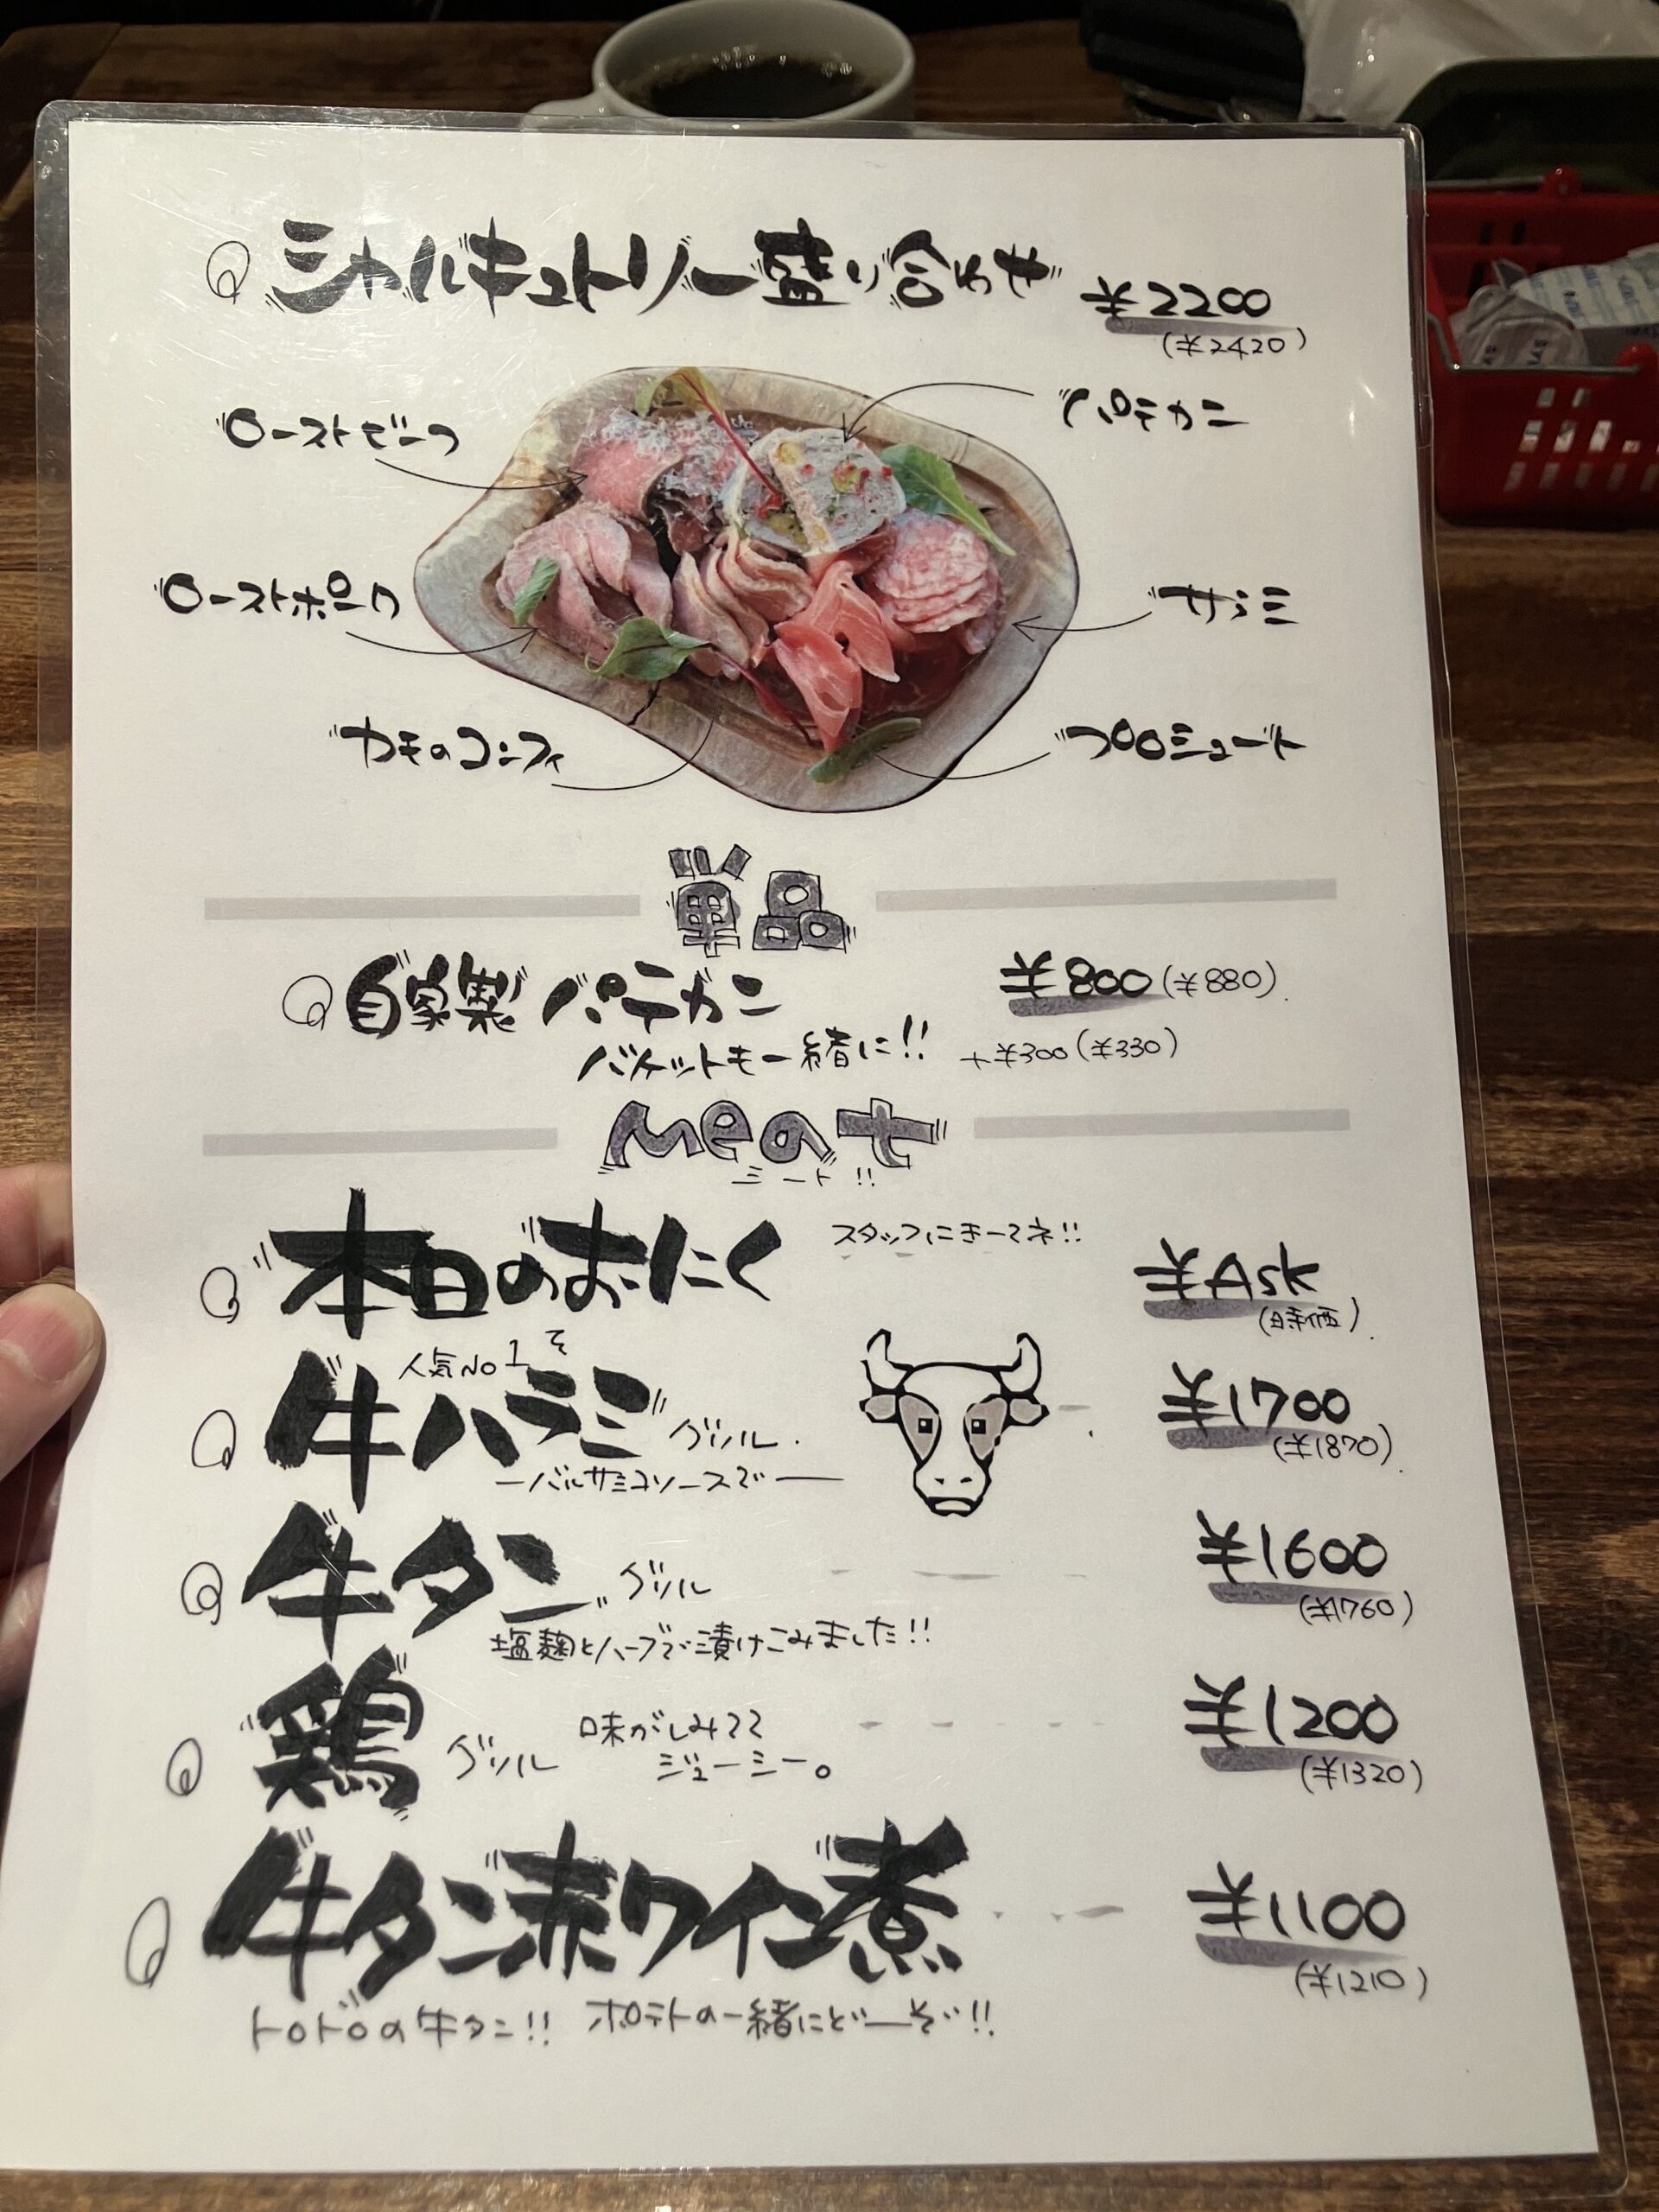 シャルキュトリー盛り合わせ ¥2200
(¥2420)
ローストビーフ
パテカン
ローストポーク
サラミ
カモのコンフィ
プロシュート
単品
自家製パテカン ¥800(¥880)
バケットも一緒に!! +¥300(¥330)
Meat
ミート!!
本日のおにく スタッフにきーてネ!! ¥Ask
(時価)
人気No1
牛ハラミ グリル ¥1700
(¥1870)
バルサミコソースで
牛タン グリル ¥1600
(¥1760)
塩麹とハーブで漬けこみました!!
鶏 グリル 味がしみてて ¥1200
ジューシー。
(¥1320)
牛タン赤ワイン煮 ¥1100
(¥1210)
トロトロの牛タン!! ポテトの一緒にどーぞ!!